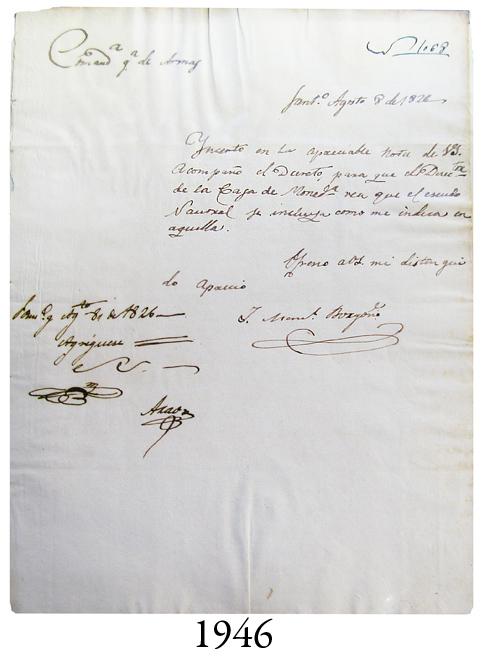 Comand.ª g.ª de Armas
N 1068
Sant.º Agosto 8 de 1826
Ynserto en la apreciable nota de VS.
Acompaño el Dureto, para que el Direc.tor
de la Casa de Moned.ª vea que el escudo
Nacional se incluya como me indica en
aquella.
Ofresco a VS. mi distingui
do aprecio
J. Man.l Borgoño
Sant.º y Ag.to 8 de 1826
Agreguese
1946